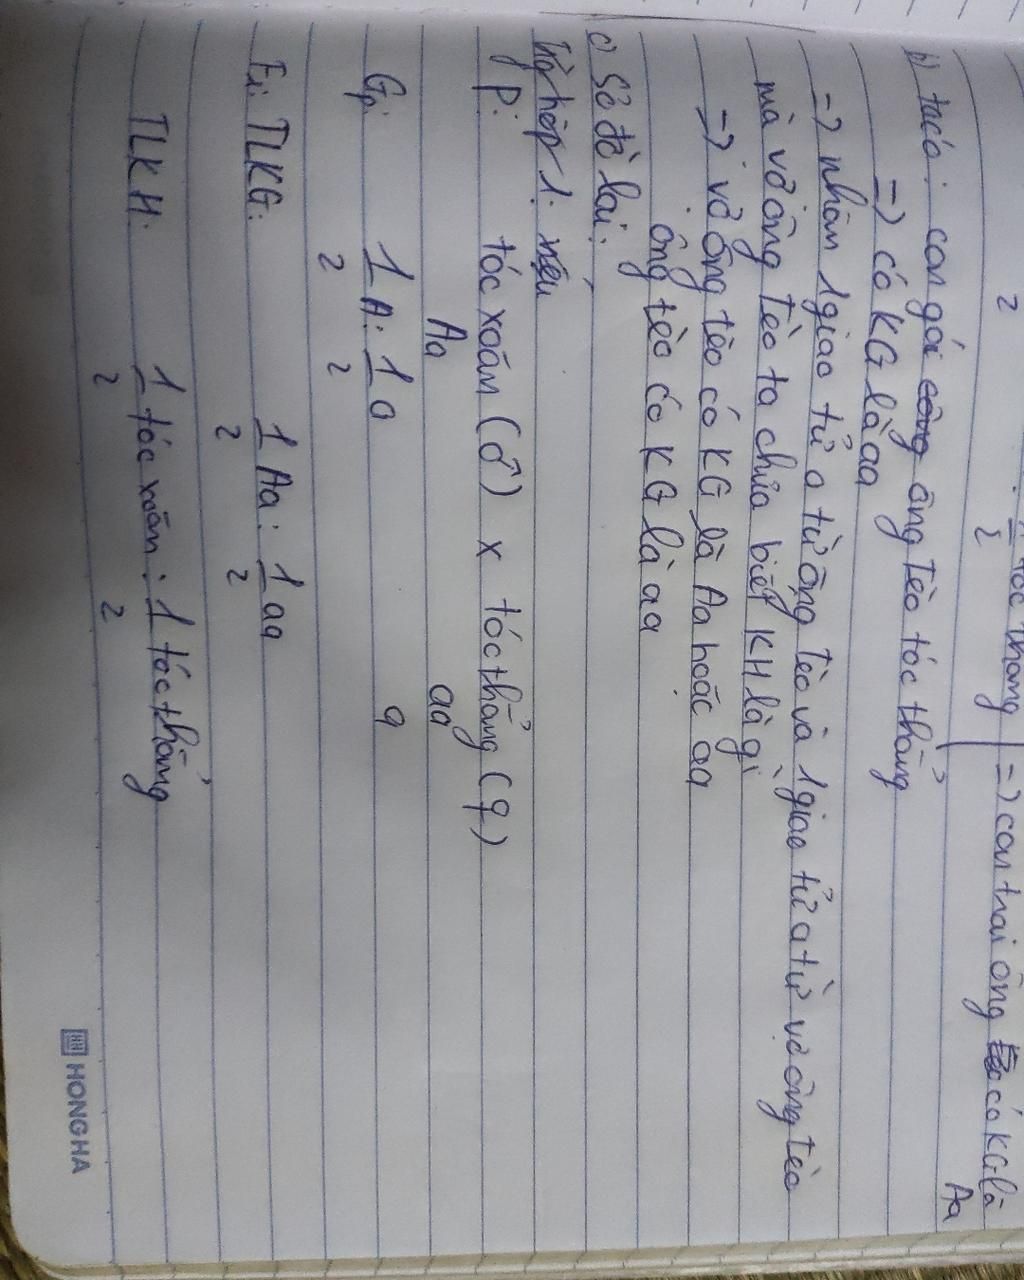 2
2
tóc thẳng => con trai ông có KG là
Aa
b) ta có: con gái ông Tèo tóc thẳng
=> có KG là aa
=> nhận 1 giao tử a từ ông Tèo và 1 giao tử a từ vợ ông Tèo
mà vợ ông Tèo ta chưa biết KH là gì
=> vợ ông tèo có KG là Aa hoặc aa
ông tèo có KG là aa
c) Sơ đồ lai:
Trg hợp 1: nếu
P: tóc xoăn (♂) x tóc thẳng (♀)
Aa aa
Gp: 1/2 A : 1/2 a a
F1: TLKG: 1/2 Aa : 1/2 aa
TLKH: 1/2 tóc xoăn : 1/2 tóc thẳng
HONG HA